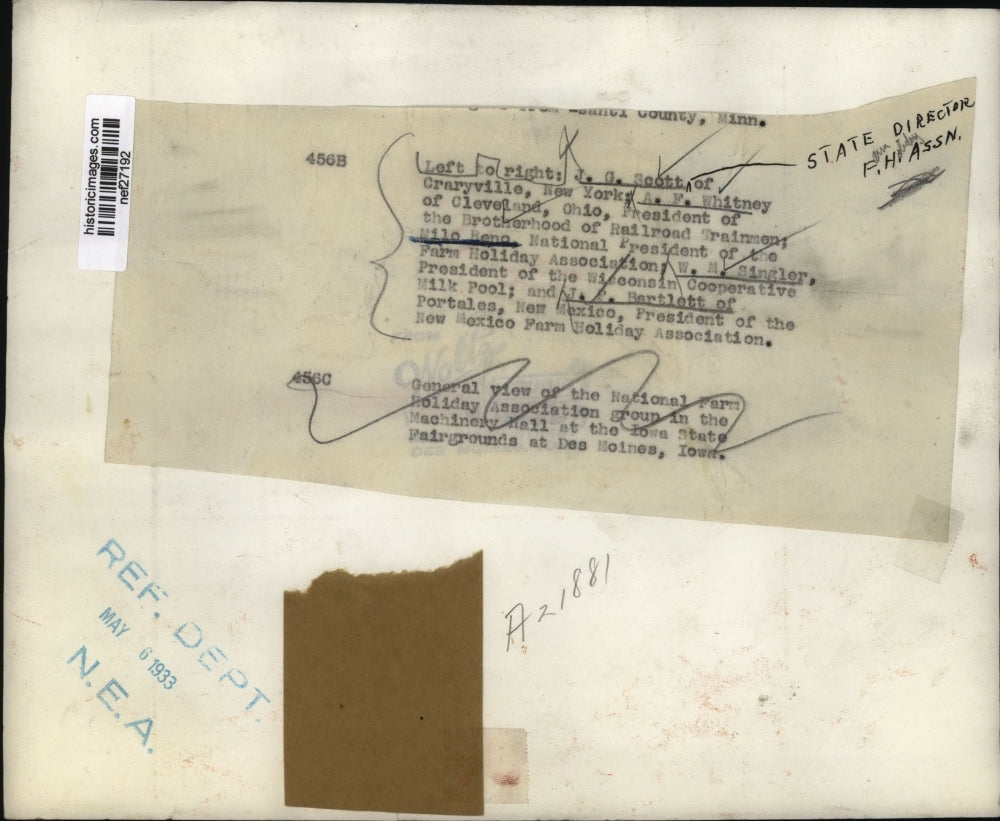 santi County, Minn.
STATE DIRECTOR
F. H. ASSN.
historicimages.com
nef27192
456B
Left to right: J. G. Scott of
Craryville, New York; A. F. Whitney
of Cleveland, Ohio, President of
the Brotherhood of Railroad Trainmen;
Milo Reno, National President of the
Farm Holiday Association; W. M. Singler,
President of the Wisconsin Cooperative
Milk Pool; and J. Bartlett of
Portales, New Mexico, President of the
New Mexico Farm Holiday Association.
456C
General view of the National Farm
Holiday Association group in the
Machinery Hall at the Iowa State
Fairgrounds at Des Moines, Iowa.
REF. DEPT.
MAY 6 1933
N.E.A.
A21881